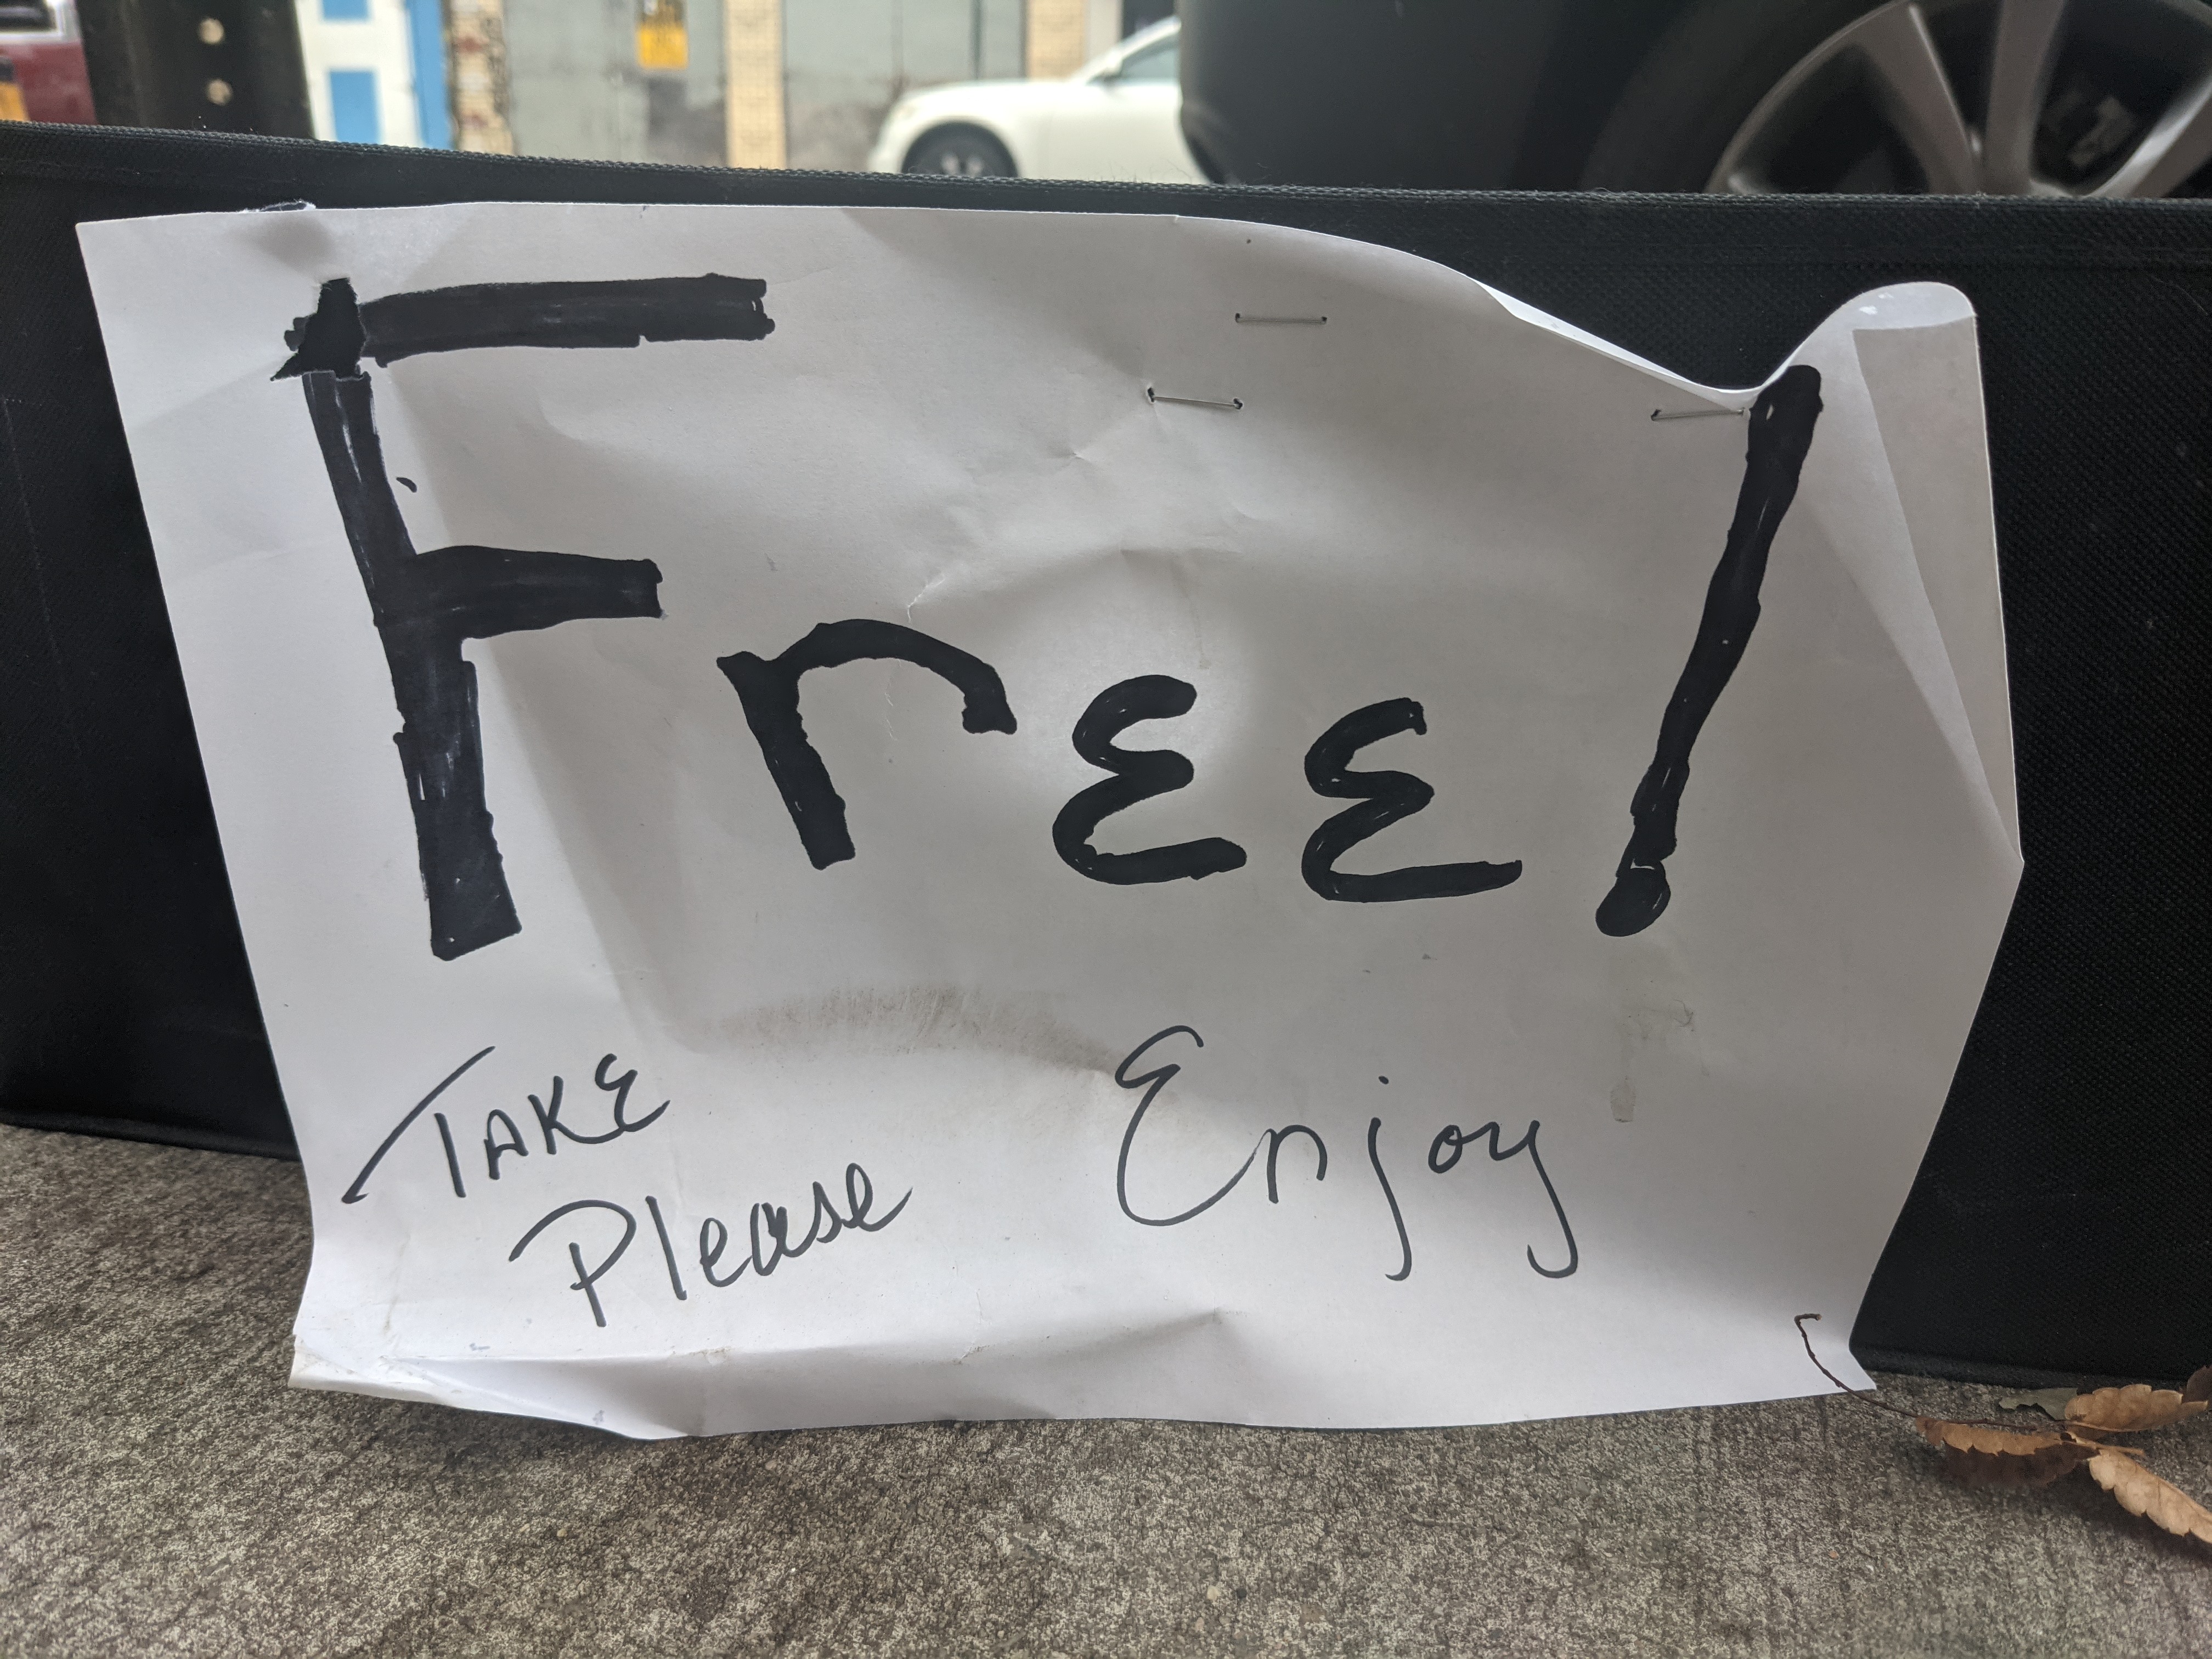 Free!
TAKE
Please
Enjoy